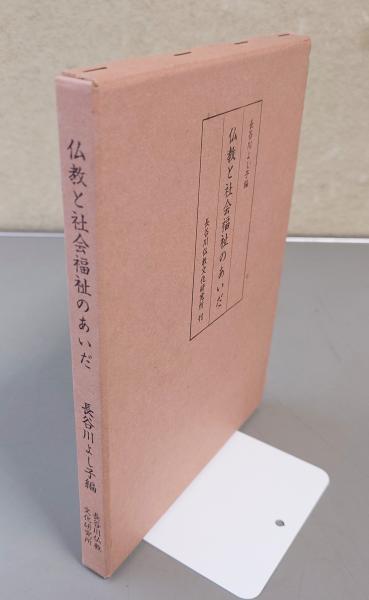 仏教と社会福祉のあいだ
長谷川よし子編
長谷川仏教
文化研究所
長谷川よし子編
仏教と社会福祉のあいだ
長谷川仏教文化研究所 刊